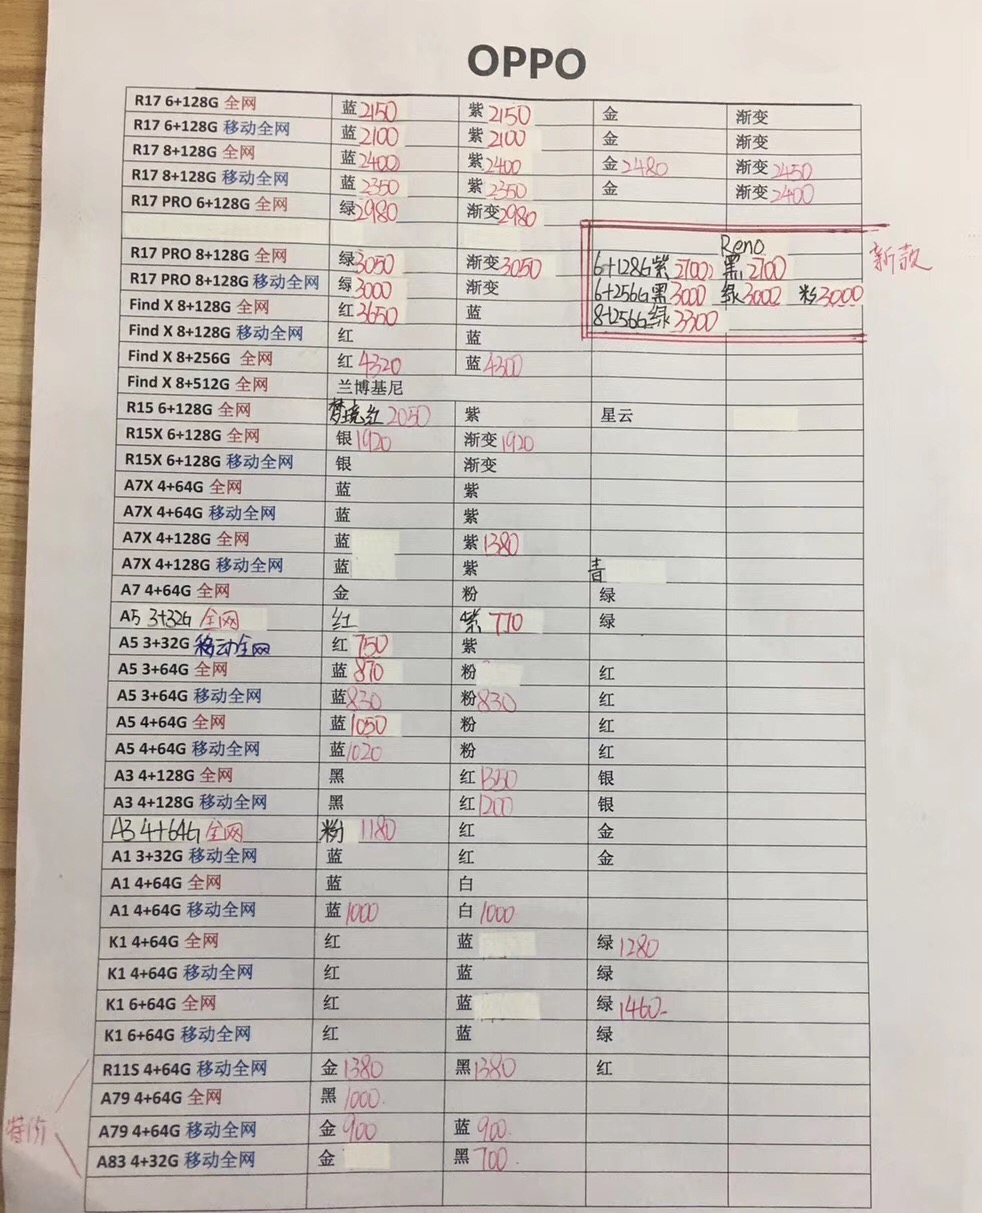 OPPO
R17 6+128G 全网 蓝2150 紫2150 金 渐变
R17 6+128G 移动全网 蓝2100 紫2100 金 渐变
R17 8+128G 全网 蓝2400 紫2400 金2480 渐变2450
R17 8+128G 移动全网 蓝2350 紫2350 金 渐变2400
R17 PRO 6+128G 全网 绿2980 渐变2980
Reno
新款
R17 PRO 8+128G 全网 绿3050 渐变3050 6+128G紫2700 黑2700
R17 PRO 8+128G 移动全网 绿3000 渐变 6+256G黑3000 绿3000 粉3000
Find X 8+128G 全网 红3650 蓝 8+256G绿3300
Find X 8+128G 移动全网 红 蓝
Find X 8+256G 全网 红4320 蓝4300
Find X 8+512G 全网 兰博基尼
R15 6+128G 全网 梦境红2050 紫 星云
R15X 6+128G 全网 银1920 渐变1920
R15X 6+128G 移动全网 银 渐变
A7X 4+64G 全网 蓝 紫
A7X 4+64G 移动全网 蓝 紫
A7X 4+128G 全网 蓝 紫1380
A7X 4+128G 移动全网 蓝 紫 青
A7 4+64G 全网 金 粉 绿
A5 3+32G 全网 红 紫770 绿
A5 3+32G 移动全网 红750 紫
A5 3+64G 全网 蓝870 粉 红
A5 3+64G 移动全网 蓝830 粉830 红
A5 4+64G 全网 蓝1050 粉 红
A5 4+64G 移动全网 蓝1020 粉 红
A3 4+128G 全网 黑 红1350 银
A3 4+128G 移动全网 黑 红1200 银
A3 4+64G 全网 粉 1180 红 金
A1 3+32G 移动全网 蓝 红 金
A1 4+64G 全网 蓝 白
A1 4+64G 移动全网 蓝1000 白1000
K1 4+64G 全网 红 蓝 绿1280
K1 4+64G 移动全网 红 蓝 绿
K1 6+64G 全网 红 蓝 绿1460
K1 6+64G 移动全网 红 蓝 绿
R11S 4+64G 移动全网 金1380 黑1380 红
A79 4+64G 全网 黑1000
特价
A79 4+64G 移动全网 金900 蓝900
A83 4+32G 移动全网 金 黑700